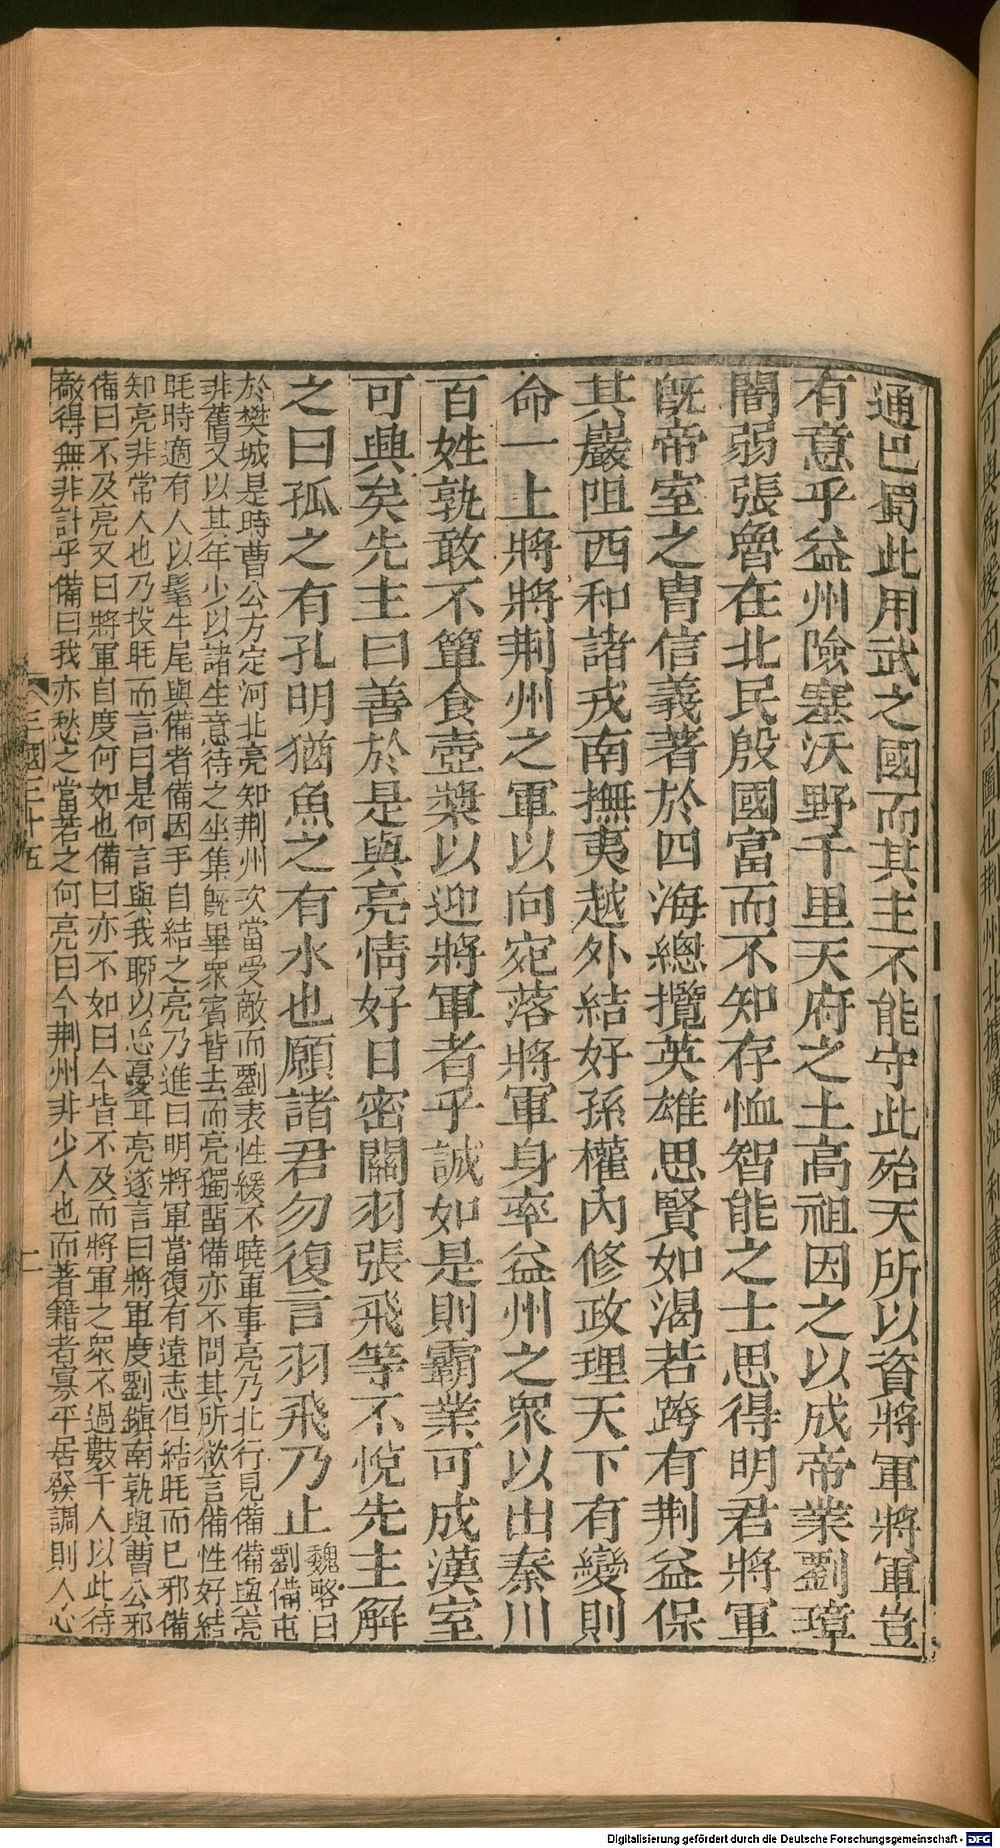 通巴蜀此用武之國而其主不能守此殆天所以資將軍將軍豈
有意乎益州險塞沃野千里天府之土高祖因之以成帝業劉璋
闇弱張魯在北民殷國富而不知存恤智能之士思得明君將軍
旣帝室之胄信義著於四海總攬英雄思賢如渴若跨有荆益保
其巖阻西和諸戎南撫夷越外結好孫權內修政理天下有變則
命一上將將荆州之軍以向宛落將軍身率益州之衆以出秦川
百姓孰敢不簞食壺漿以迎將軍者乎誠如是則霸業可成漢室
可興矣先主曰善於是與亮情好日密關羽張飛等不悅先主解
之曰孤之有孔明猶魚之有水也願諸君勿復言羽飛乃止
魏略曰
劉備屯
於樊城是時曹公方定河北亮知荆州次當受敵而劉表性緩不曉軍事亮乃北行見備備與亮
非舊又以其年少以諸生意待之坐集旣畢衆賓皆去而亮獨留備亦不問其所欲言備性好結
毦時適有人以髦牛尾與備者備因手自結之亮乃進曰明將軍當復有遠志但結毦而已邪備
知亮非常人也乃投毦而言曰是何言與我聊以忘憂耳亮遂言曰將軍度劉鎮南孰與曹公邪
備曰不及亮又曰將軍自度何如也備曰亦不如曰今皆不及而將軍之衆不過數千人以此待
敵得無非計乎備曰我亦愁之當若之何亮曰今荆州非少人也而著籍者寡平居發調則人心
三國三十五
二
Digitalisierung gefördert durch die Deutsche Forschungsgemeinschaft - DFG